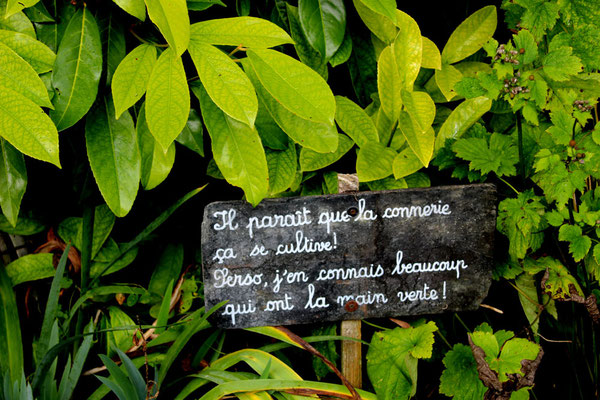 Il paraît que la connerie
ça se cultive!
Perso, j'en connais beaucoup
qui ont la main verte!